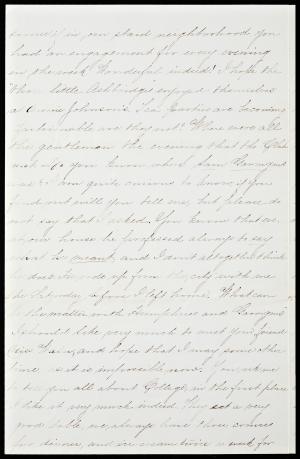 in our staid neighborhood you
had an engagement for every evening
in the week Wonderful indeed! I hope the
three little Ashbridges enjoyed themselves
at Annie Johnson's. Tea Parties are becoming
fashionable are they not? Where were all
the gentlemen the evening that the Club
met. Do you know when Sam
was I am quite curious to know if you
find out will you tell me, but please do
not say that I asked. You know that once
at our house he professed always to say
what he meant, and I don't altogether think
he does. He rode up from the city with me
the Saturday before I left home. What can
be the matter with Humphries and
I should like very much to meet your friend
and hope that I may some other
time, as it is impossible now. You ask me
to tell you all about College, in the first place
I like it very much indeed. They set a very
good table we always have three courses
for dinner, and ice cream twice a week for